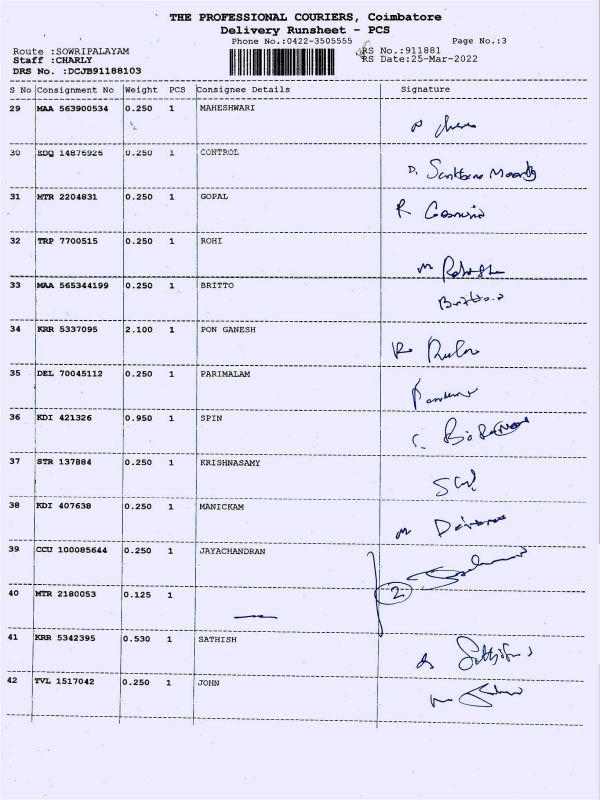 THE PROFESSIONAL COURIERS, Coimbatore
Delivery Runsheet - PCS
Phone No.:0422-3505555 Page No.:3
Route :SOWRIPALAYAM RS No.:911881
Staff :CHARLY RS Date:25-Mar-2022
DRS No. :DCJB91188103
S No Consignment No Weight PCS Consignee Details Signature
29 MAA 563900534 0.250 1 MAHESHWARI
30 EDQ 14876926 0.250 1 CONTROL
31 MTR 2204831 0.250 1 GOPAL
32 TRP 7700515 0.250 1 ROHI
33 MAA 565344199 0.250 1 BRITTO
34 KRR 5337095 2.100 1 PON GANESH
35 DEL 70045112 0.250 1 PARIMALAM
36 KDI 421326 0.950 1 SPIN
37 STR 137884 0.250 1 KRISHNASAMY
38 KDI 407638 0.250 1 MANICKAM
39 CCU 100085644 0.250 1 JAYACHANDRAN
40 MTR 2180053 0.125 1 2
41 KRR 5342395 0.530 1 SATHISH
42 TVL 1517042 0.250 1 JOHN